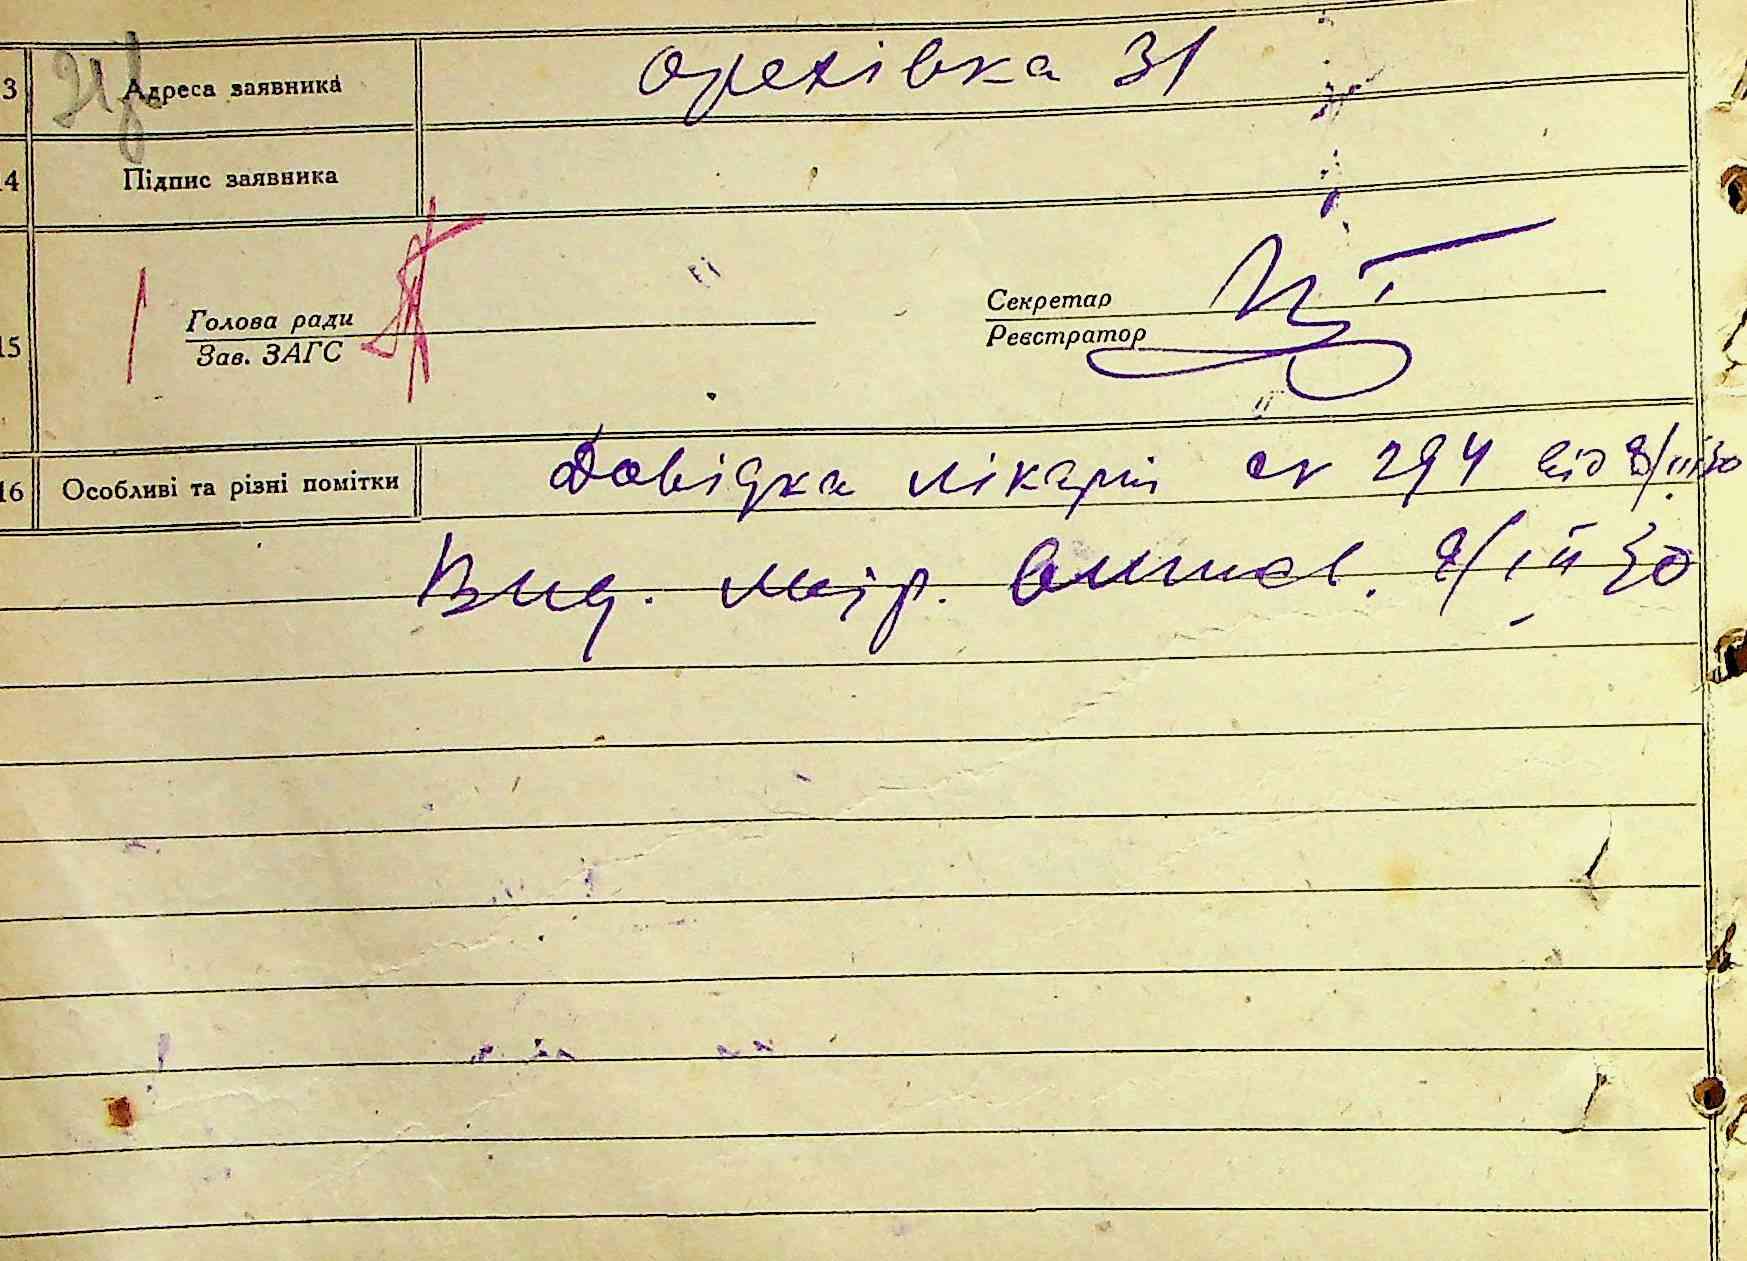 3 Адреса заявника Орехівка 31
14 Підпис заявника
15 Голова ради Секретар
Зав. ЗАГС Реєстратор
16 Особливі та різні помітки Довідка лікарні № 294 від 8/III 30
Вид. 8/III 30